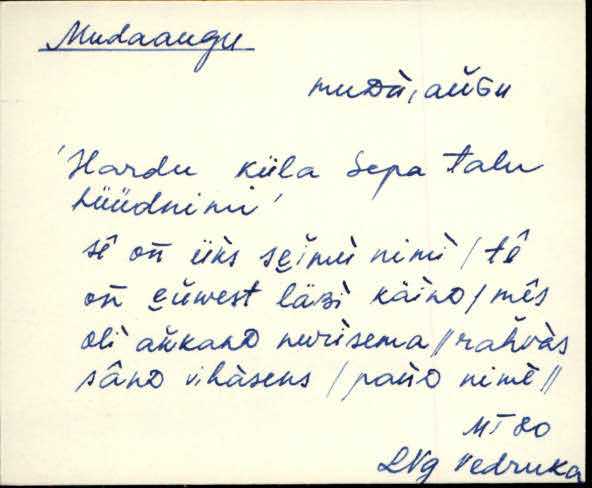 Mudaaugu
muDà, aŭGu
'Hardu küla Sepa talu
hüüdnimi'
sê on̄ üks sęĭmù nimì / tê
on̄ ęŭwest läʙì käinD / mês
oli aŭkanD nurìsema // rahvàs
sânD vihàsens / panD nimè //
MT 80
LNg Vedruka